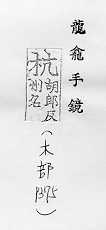 龍龕手鏡
杭 胡郎反
州名
(木部
p375)